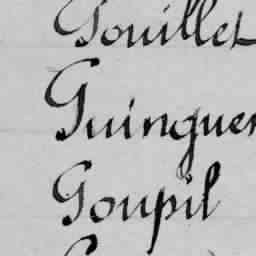 Gouillet
Guinguer
Goupil